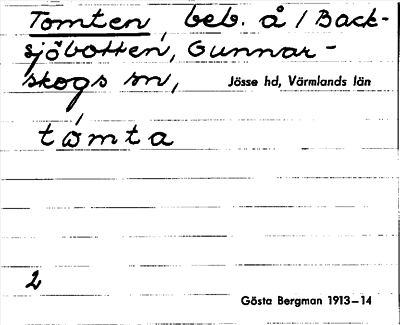 Tomten, beb. å / Back-
sjöbotten, Gunnar-
skogs sn, Jösse hd, Värmlands län
tòmta
2
Gösta Bergman 1913–14